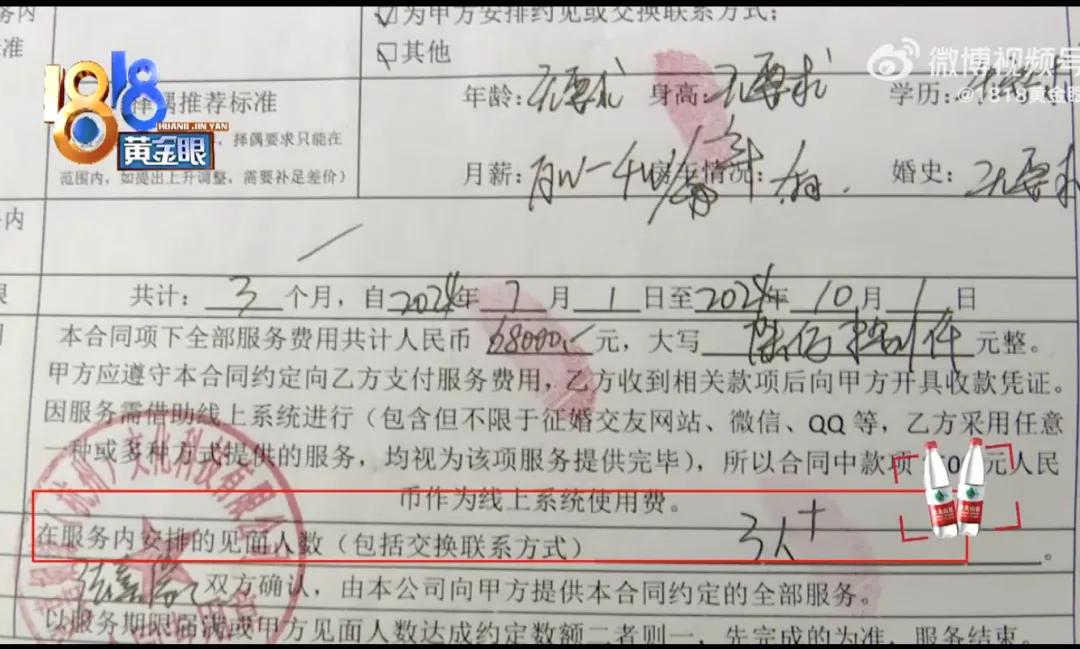 为甲方安排约见或交换联系方式；
务内
准
其他
微博视频号
@1818黄金眼
1818
HUANG JIN YAN
黄金眼
择偶推荐标准
年龄：无要求 身高：无要求 学历：
择偶要求只能在
范围内，如提出上升调整，需要补足差价）
月薪： 情况： 婚史：无要求
内
限
共计：3个月，自2024年7月1日至2024年10月1日
本合同项下全部服务费用共计人民币68000.-元，大写 元整。
甲方应遵守本合同约定向乙方支付服务费用，乙方收到相关款项后向甲方开具收款凭证。
因服务需借助线上系统进行（包含但不限于征婚交友网站、微信、QQ等，乙方采用任意
一种或多种方式提供的服务，均视为该项服务提供完毕），所以合同中款项 元人民
币作为线上系统使用费。
在服务内安排的见面人数（包括交换联系方式） 3人+。
双方确认，由本公司向甲方提供本合同约定的全部服务。
以服务期限届满或甲方见面人数达成约定数额二者则一，先完成的为准，服务结束。